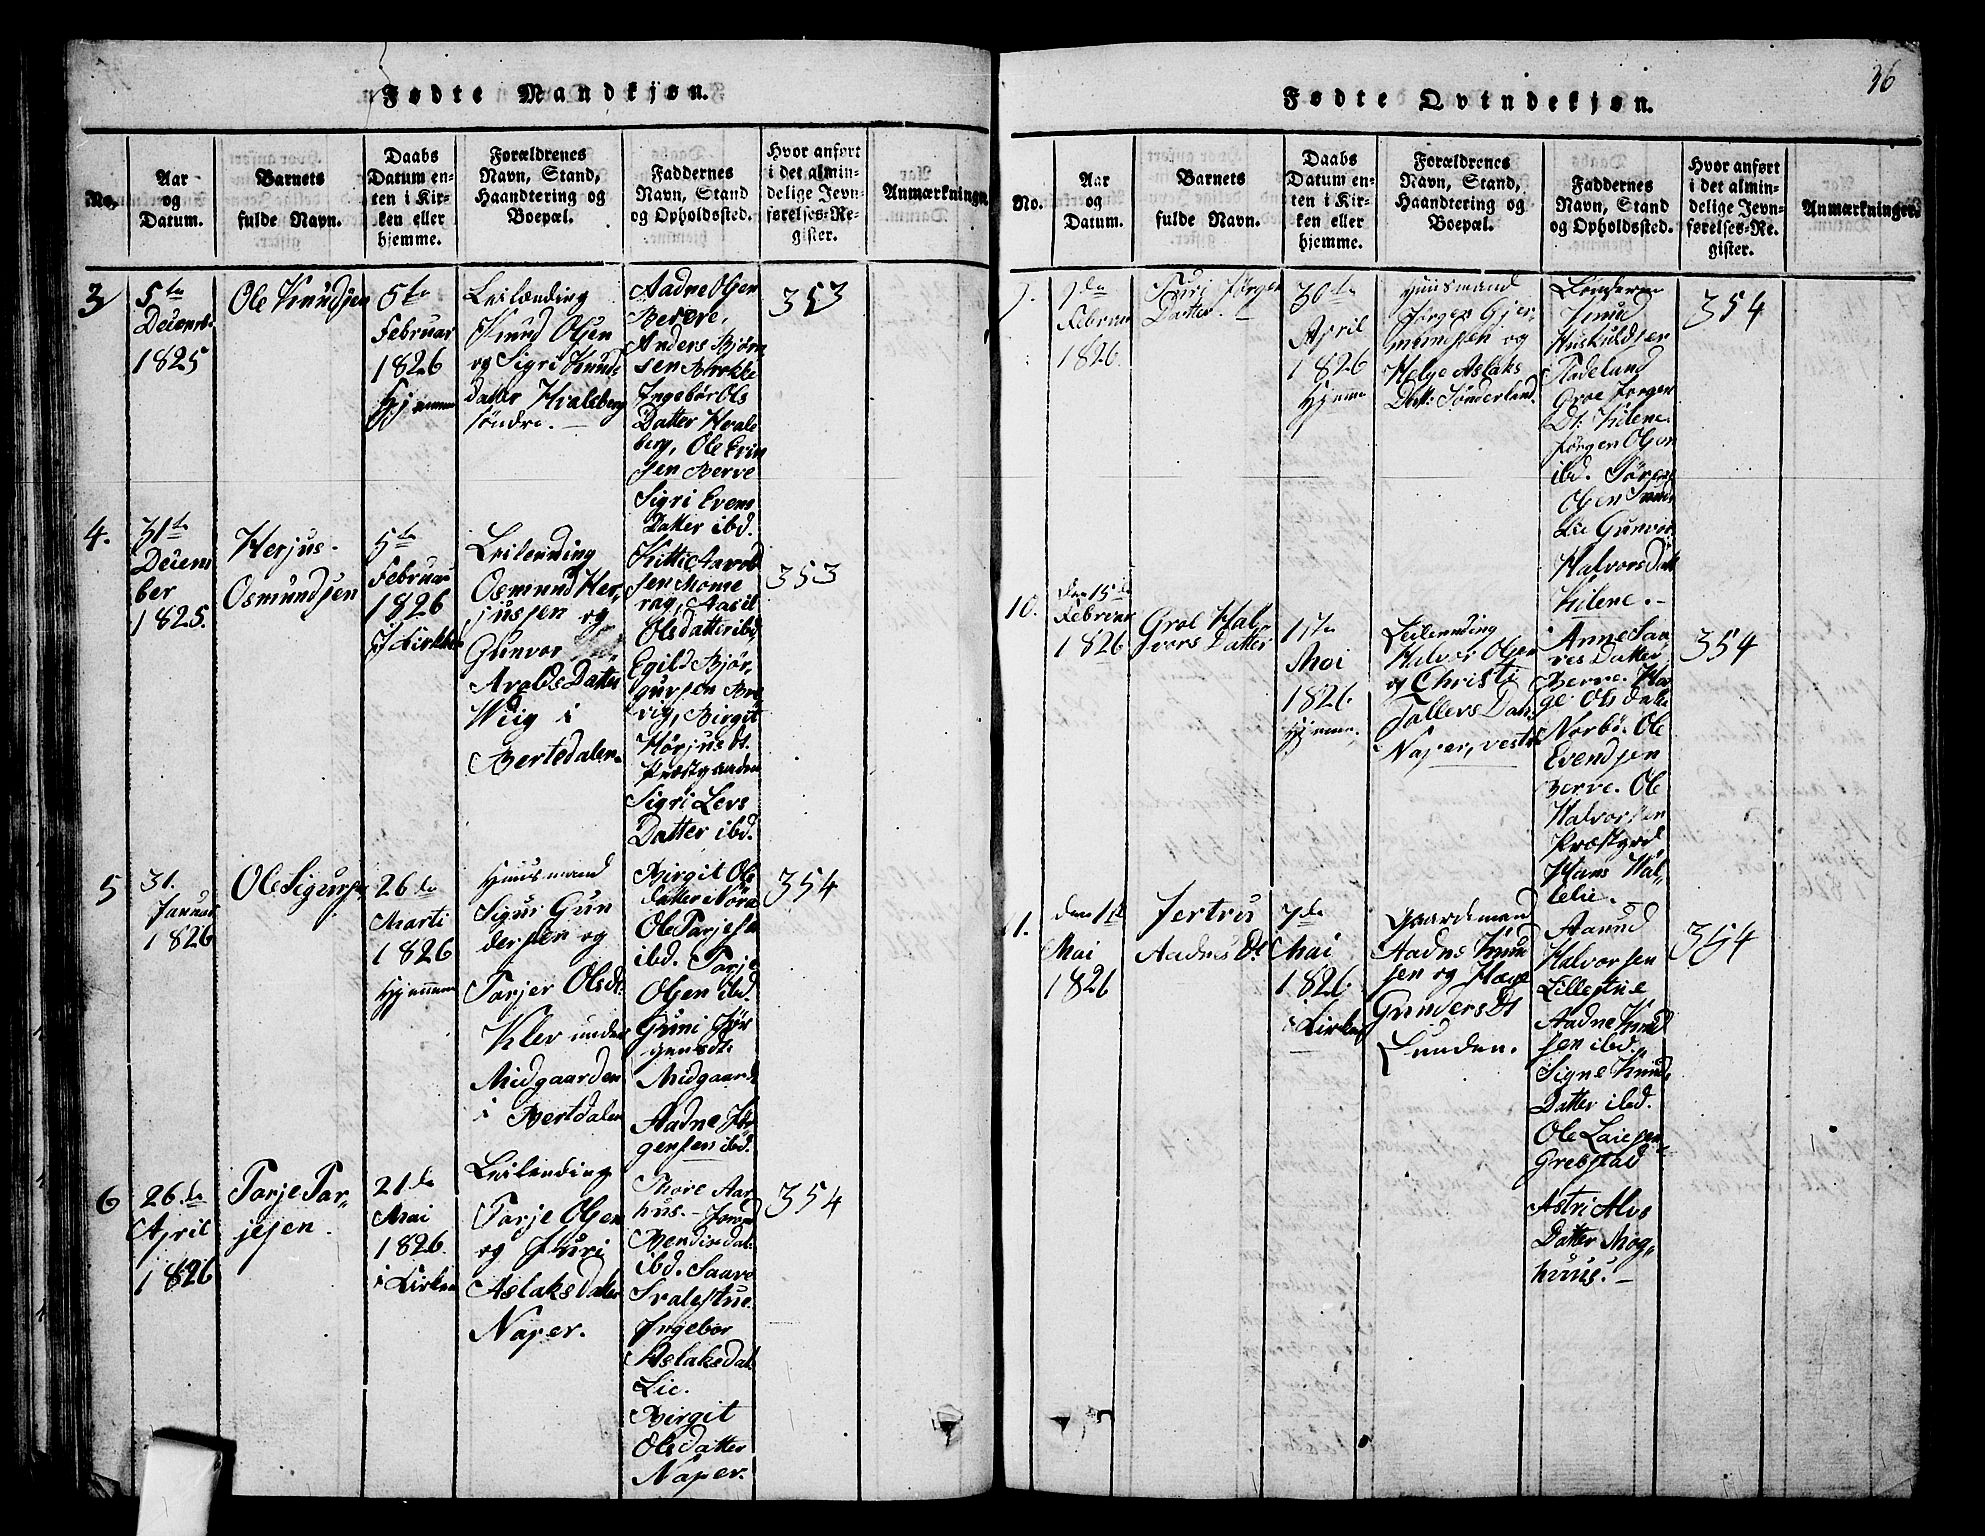 Fødte Mandkjøn.
No.
Aar
og
Datum.
Barnets
fulde Navn.
Daabs
Datum en-
ten i Kir-
ken eller
hjemme.
Forældrenes
Navn, Stand,
Haandtering og
Boepæl.
Faddernes
Navn, Stand
og Opholdssted.
Hvor anført
i det almin-
delige Jevn-
førelses-Re-
gister.
Anmærkninger.
3
5te
Decemb.
1825
Ole Knudsen
5te
Februar
1826
Hjemme
Leilænding
Knud Olsen
og Sigri Knuds
datter Kvaleberg
søndre.
Aadne Olsen
Berve,
Anders Bjørn
sen Brokke
Ingebør Ols
Datter Kvale
berg, Ole Evin
sen Berve
Sigri Evens
Datter ibd.
353
4.
31te
Decem
ber
1825.
Herjus
Osmundsen
5te
Februar
1826
I Kirken
Leilending
Osmund Her-
jussen og
Gunvor
Arolds Datter
Wiig i
Bertedalen
Kitti Aavold
sen Mome
rag, Aasil
Olsdatter ibd
Egild Bjør-
gursen Bre
vig, Birgit
Hørjusdt.
Præstgaarden
Sigri Levs
Datter ibd.
353
5
31.
Januar
1826
Ole Sigurs
26de
Marti
1826
Hjemme
Huusmand
Sigur Gun
dersen og
Tarjer Olsdt.
Klev under
Midgaarden
i Bertdalen
Birgit Ols
datter Nøra
Ole Tarjese
ibd. Tarje
Olsen ibd.
Guni Jør
gensdt.
Midgaard
Aadne Jør
gensen ibd.
354
6
26de
April
1826
Tarje Tar-
jesen.
21de
Mai
1826
i Kirken
Leilending
Tarje Olsen
og Juri
Aslaksdatter
Naper.
Thore Aar
huus. Jorand
Bendixdat.
ibd. Saave
Svalestue
Ingebor
Aslaksdat.
Lie.
Birgit
Olsdatter
Naper.
354
36
Fødte Qvindekjøn.
No.
Aar
og
Datum.
Barnets
fulde Navn.
Daabs
Datum en-
ten i Kir-
ken eller
hjemme.
Forældrenes
Navn, Stand,
Haandtering og
Boepæl.
Faddernes
Navn, Stand
og Opholdssted.
Hvor anført
i det almin-
delige Jevn-
førelses-Re-
gister.
Anmærkninger.
Februar
1826
Turi Jørgen
Datter.
30te
April
1826
Hjemme
Huusmand
Jørgen Gjer-
mundsen og
Helge Aslaks
Datt: Sønderland.
Knud
Huskuldsen
Radelund
Groe Jørgen
Dt: Kilene
Jørgen Olsen
ibd.
Olsen
Lie Gunvor
Halvorsdatt
Kilene.
354
10.
den 15de
Februar
1826
Groe Hal-
vors Datter
Mai
1826.
Hjemme.
Leilending
Halvor Olsen
og Christi
Tallers Dat.
Naper, vestre
Anne
Datter
Berve.
Olsdatter
Norbø. Ole
Evendsen
Berve. Ole
Halvorsen
Præstgrd.
Hans Hal-
354
11.
den 1te
Mai
1826
Jertru
Aadnes Dt.
7de
Mai
1826.
i Kirken
Gaardemand
Aadne Knud
sen og
Gundersdt
Lunden.
Aanund
Halvorsen
Lillestue
Aadne Knud
sen ibd.
Signe Knuds
Datter ibd.
Ole
Grebstad
Astri Alvs
Datter Mog-
huus.
354